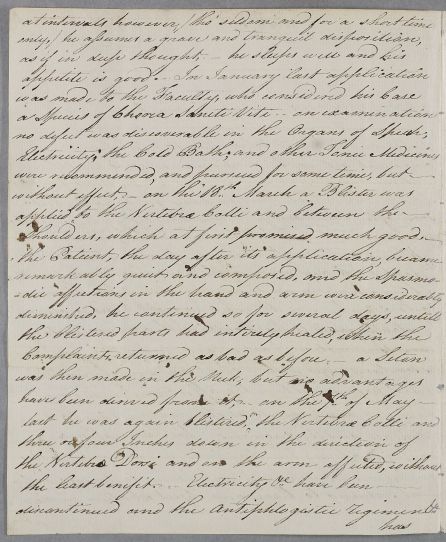 at intervals however, tho' seldom and for a short time
only, he assumes a grave and tranquil disposition,
as if in deep thought. — he sleeps well and his
appetite is good. — In January last application
was made to the Faculty, who considered his Case
a Species of Chorea Sancti Viti — on examination
no defect was discoverable in the Organs of Speech,
Electricity, the Cold Bath, and other Tonic Medicines
were recommended, and pursued for some time, but
without effect, — on the 18th March a Blister was
applied to the Vertebræ Colli and between the
Shoulders, which at first promised much good. —
the Patient, the day after its application, became
remarkably quiet and composed, and the Spasmo-
-dic affections in the hand and arm were considerably
diminished, he continued so for several days, untill
the blistered parts had intirely healed, when the
Complaints, returned as bad as before. — a Seton
was then made in the Neck, but no advantages
have been derived from it, — on the 7th of May
last he was again blistered, the Vertebræ Colli and
three or four Inches down in the direction of
the Vertebræ Dorsi and on the arm affected, without
the least benifit. — Electricity &c have been
discontinued and the Antiphlogistic regimen &c
has